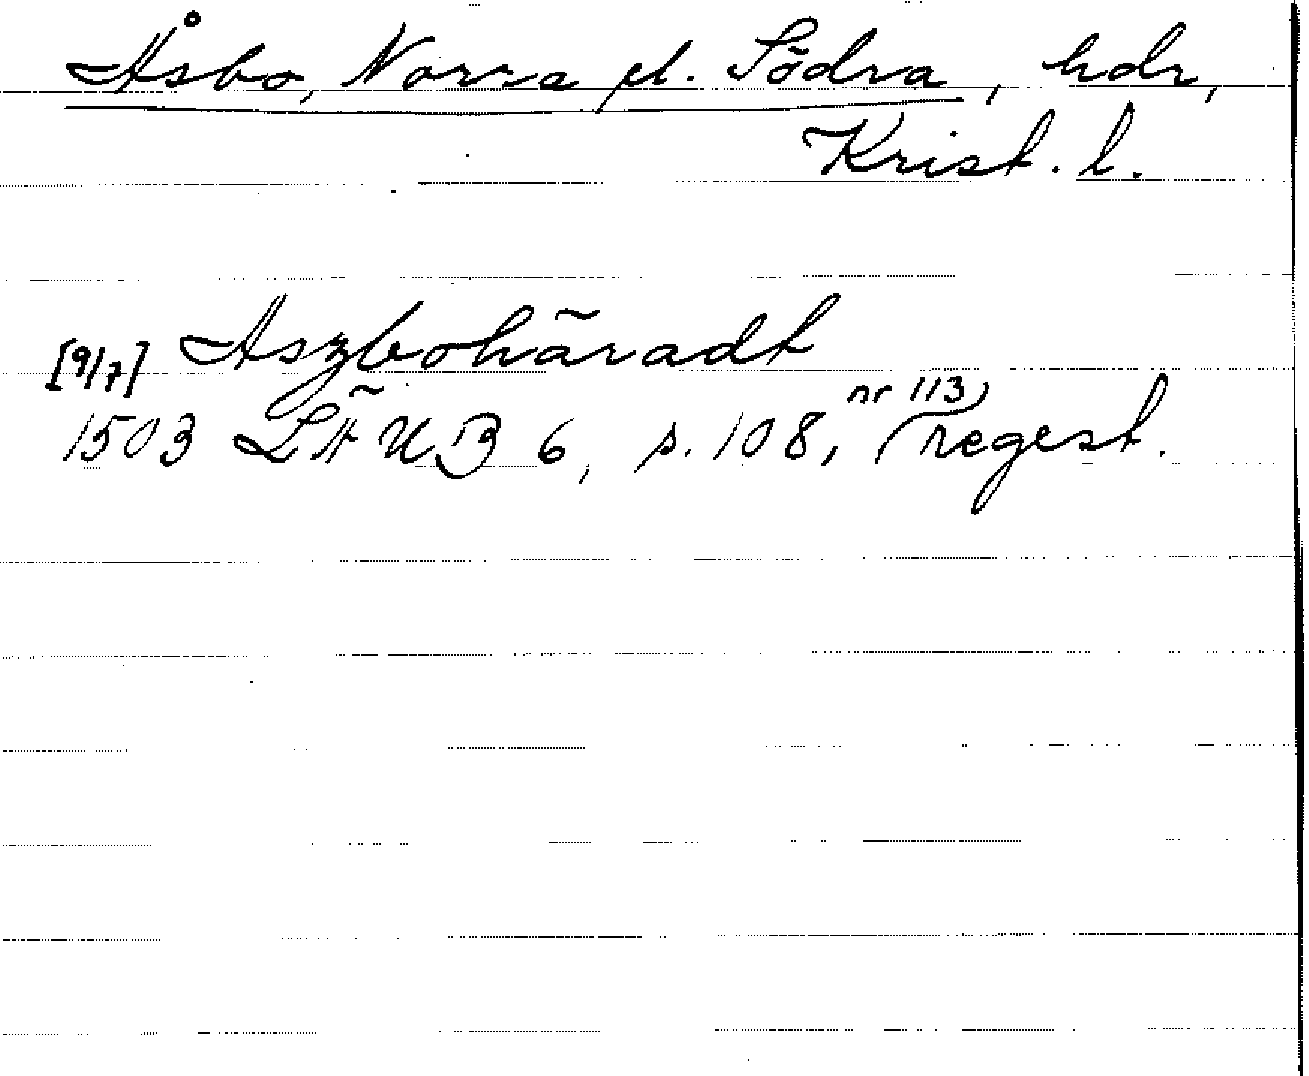 Åsbo, Norra el. Södra, hdr,
Krist. l.
[9/7] Aszbohäradt
1503 LÄUB 6, s. 108, nr 113, regest.